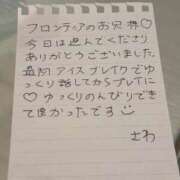 フロンティアのお兄様♡
今日は遊んでくださり
ありがとうございました
最初アイスブレイクでゆ
っくり話してからプレイに
♡ゆっくりのんびりできて
良かったです☺
さわ